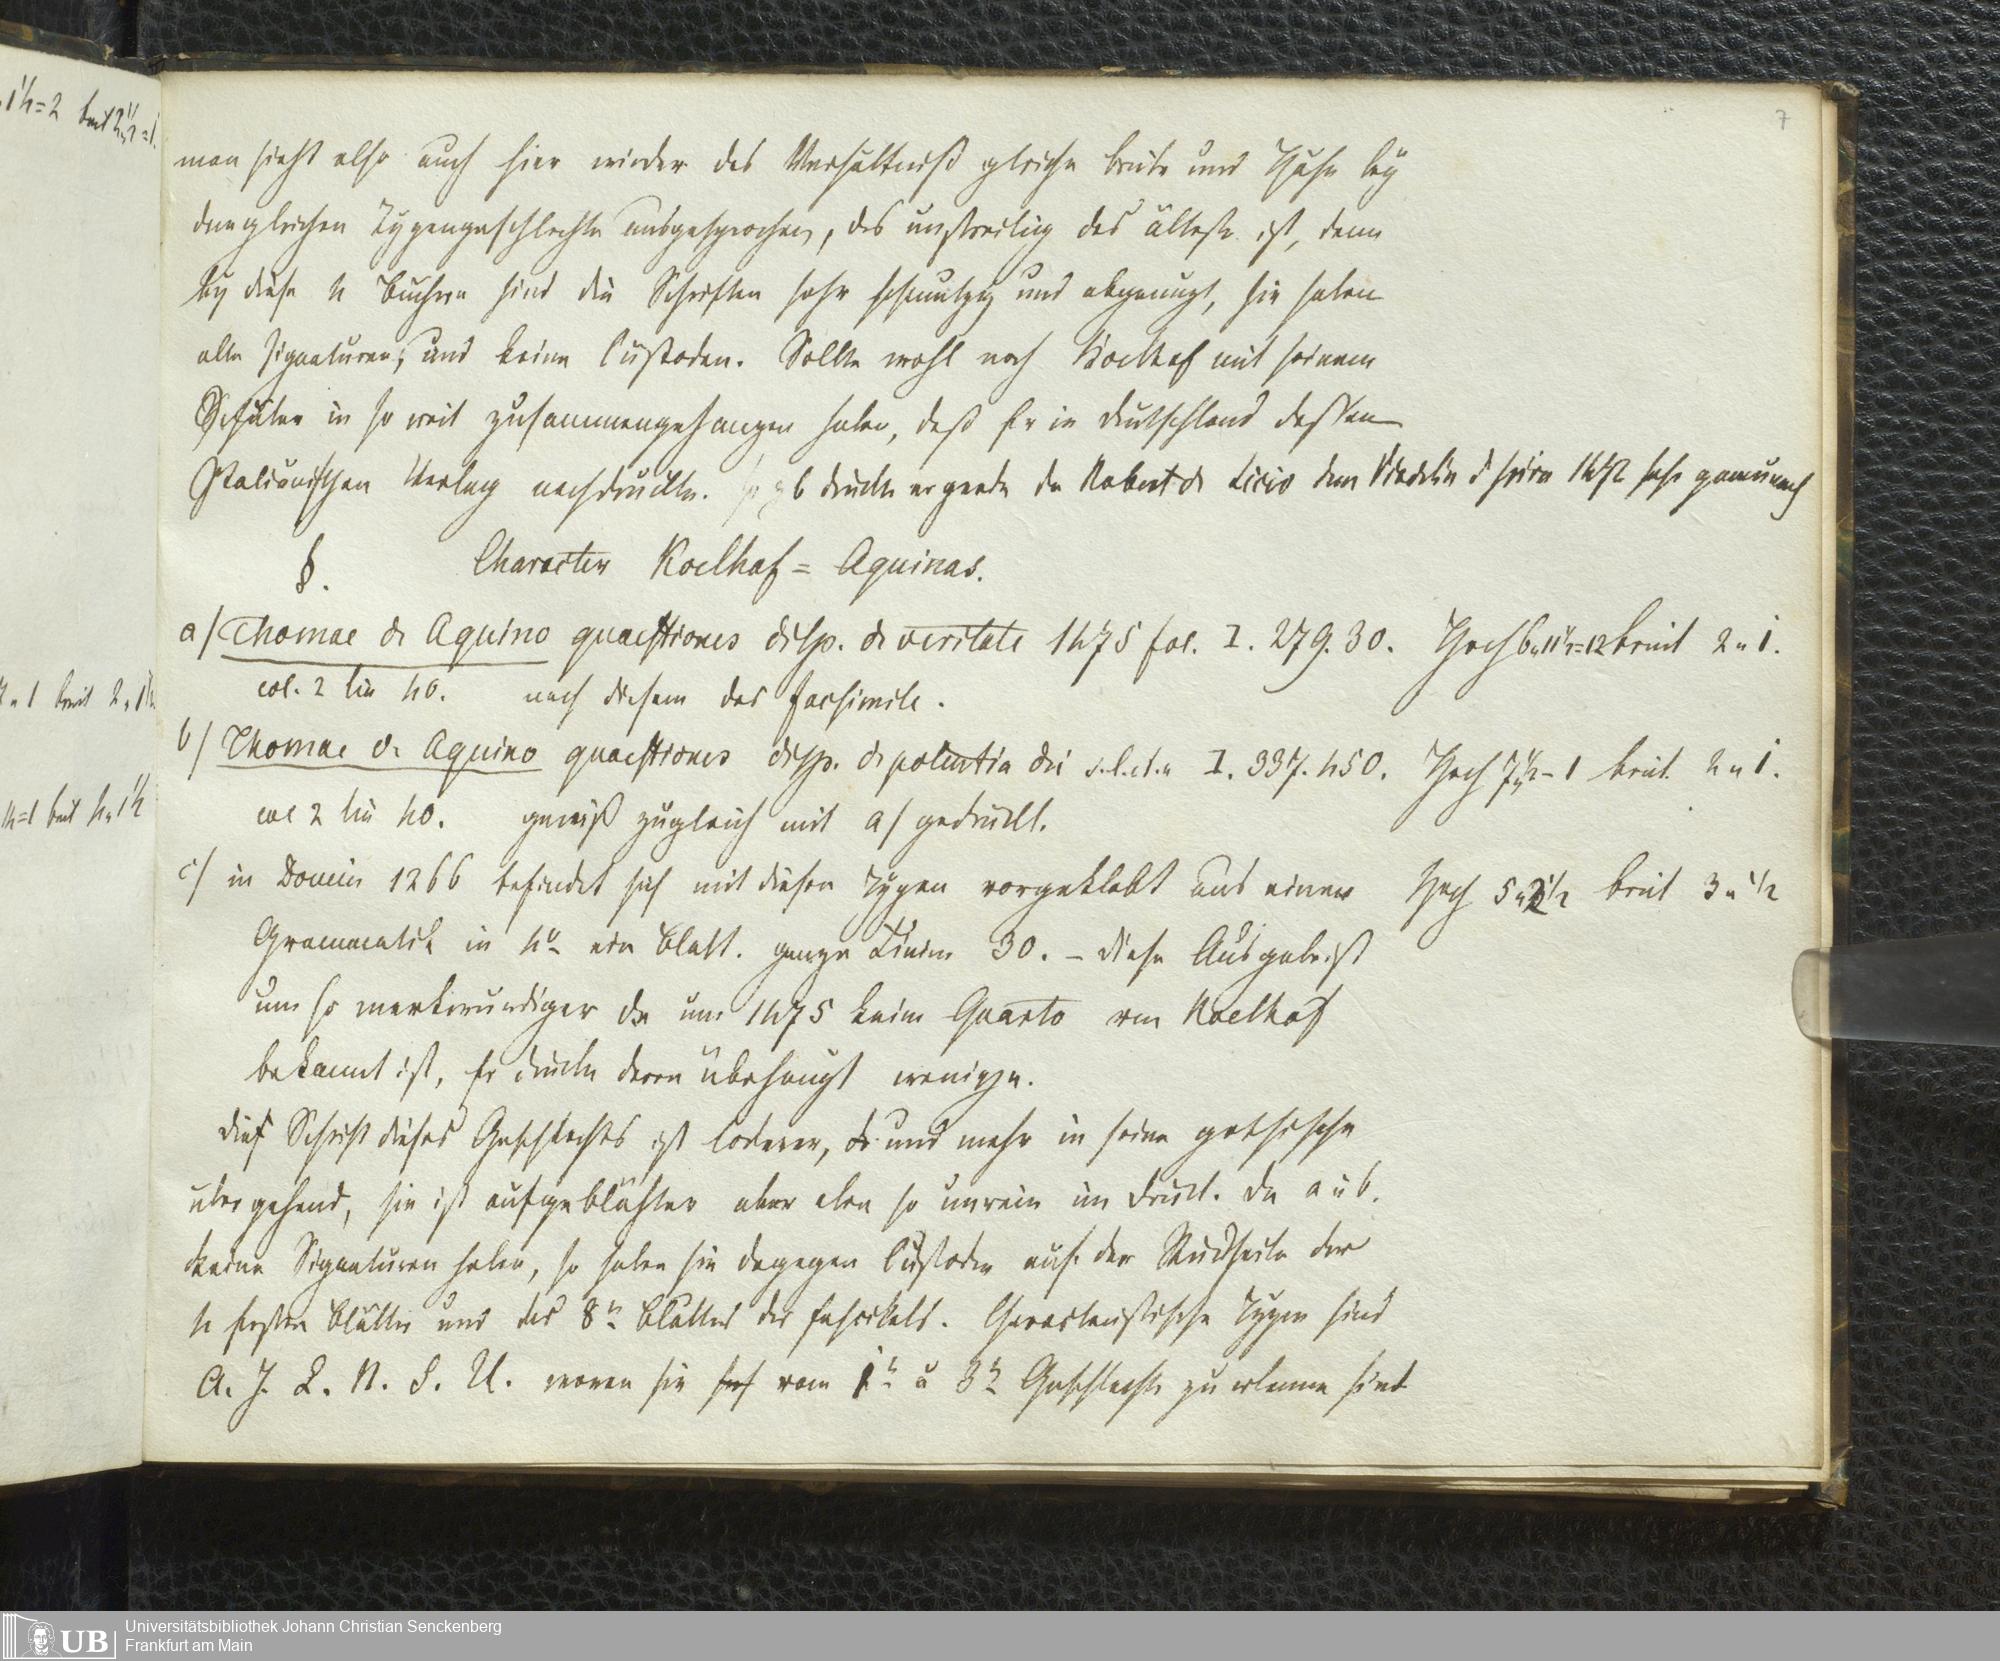 7
man sieht also auch hier wieder das Verhältniß gleicher breite und Höhe bey
dem gleichen Typengeschlechte ausgesprochen, das unstreitig das älteste ist, denn
by diesen 4 Büchern sind die Schriften sehr schmutzig und abgenuzt, sie haben
alle Signaturen, und keine Custoden. Sollte wohl noch Koelhof mit seinem
Schüler in so weit zusammengehangen haben, daß Er in Deutschland dessen
Italiänischen Verlag nachdruckte. so z b druckte er gerade de Robert de Licio dem Vindelin d Spira 1472 sehr genau nach
§. Character Koelhof = Aquinas.
a/ Thomae de Aquino quaestiones disp. de veritate 1475 fol. I. 279. 30. Hoch 6 " 11 1/2 = 12 breit 2 " 1.
col. 2 lin 40. nach diesem das facsimile.
b/ Thomae de Aquino quaestiones disp. de potentia dei s. l. et. a I. 337. 450. Hoch 7 " 1/2 - 1 breit 4 " 1.
col 2 lin 40. gewiß zugleich mit a/ gedruckt.
c/ in Domin 1266 befindet sich mit diesen Typen vorgeklebt aus einer Hoch 5 " 2 1/2 breit 3 " 1/2
Grammatik in 4º ein Blatt. ganze Linien 30. - diese Ausgabe ist
um so merkwürdiger da um 1475 keine Quarto von Koelhof
bekannt ist, Er druckte deren überhaupt wenige.
die Schrift dieses Geschlechts ist lockerer, und mehr in seine gothische
übergehend, sie ist aufgeblähter aber eben so unrein im Druck. Da a u b.
keine Signaturen haben, so haben sie dagegen Custoden auf der Rückseite der
4 ersten Blätter und des 8n Blattes des fascikels. Characteristische Typen sind
A. J. L. N. S. U. woran sie vom 1n u 3n Geschlechte zu erkennen sind
Universitätsbibliothek Johann Christian Senckenberg
Frankfurt am Main
UB